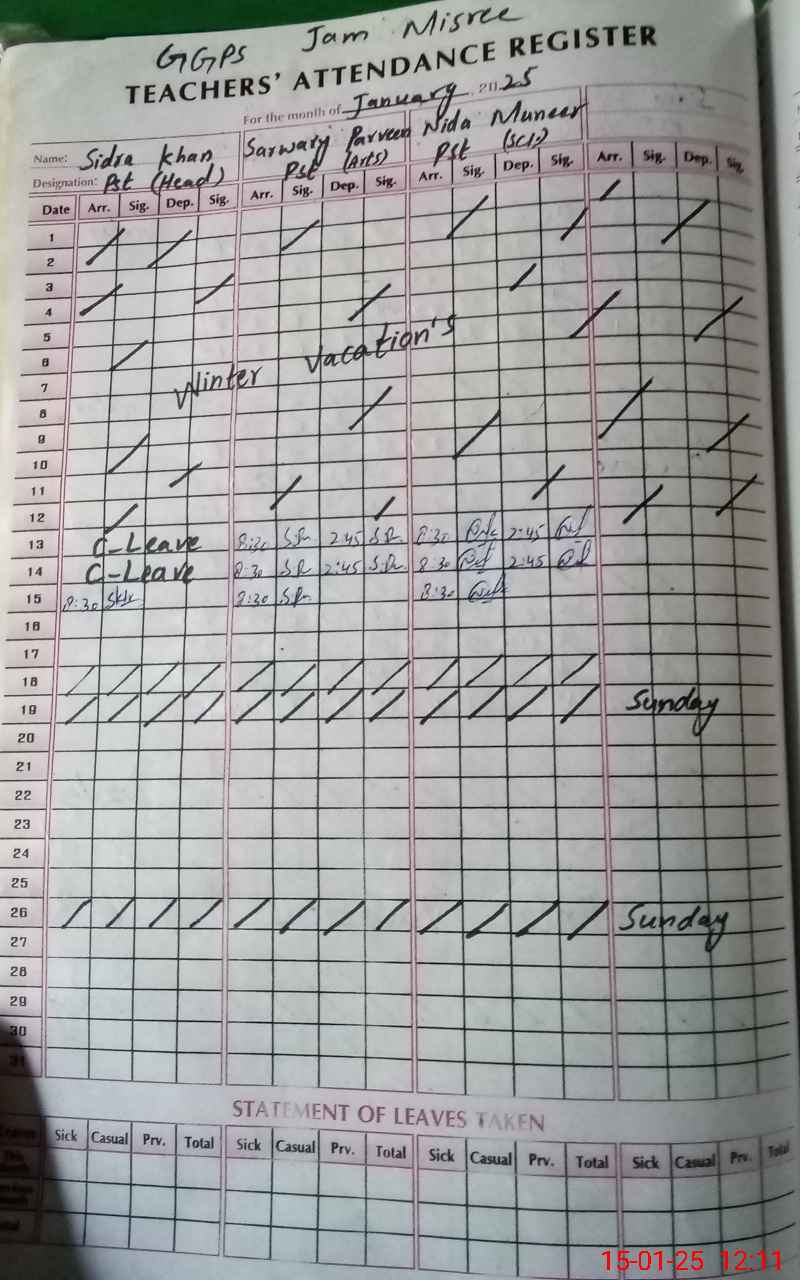 GGPS Jam Misree
TEACHERS' ATTENDANCE REGISTER
For the month of January 2025
Name: Sidra Khan Sarwary Parveen Nida Muneer
Designation: Pst (Head) Pst (Arts) Pst (SCI)
Date Arr. Sig. Dep. Sig. Arr. Sig. Dep. Sig. Arr. Sig. Dep. Sig. Arr. Sig. Dep. Sig.
1
2
3
4
5
6
Winter Vacation's
7
8
9
10
11
12
13 C-Leave 8:30 2:45 8:30 2:45
14 C-Leave 8:30 2:45 8:30 2:45
15 8:30 8:30 8:30
16
17
18
19 Sunday
20
21
22
23
24
25
26 Sunday
27
28
29
30
31
STATEMENT OF LEAVES TAKEN
Sick Casual Prv. Total Sick Casual Prv. Total Sick Casual Prv. Total Sick Casual Prv. Total
15-01-25 12:11